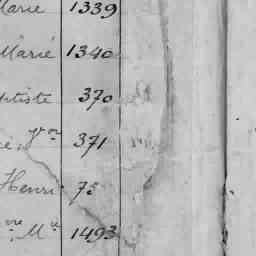 Marie 1339
Marie 1340
ptiste 370
e, Vve 371
Henri 75
vve Me 1493